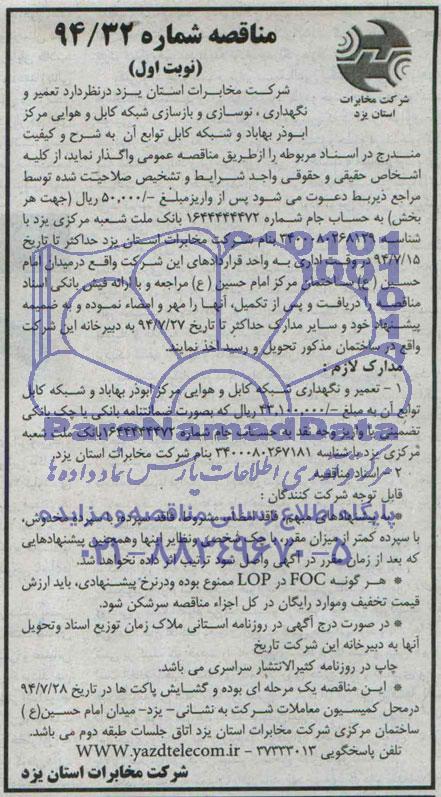 مناقصه شماره ۹۴/۳۲
(نوبت اول)
شرکت مخابرات
استان یزد
شرکت مخابرات استان یزد درنظردارد تعمیر و
نگهداری ، نوسازی و بازسازی شبکه کابل و هوایی مرکز
ابوذر بهاباد و شبکه کابل توابع آن به شرح و کیفیت
مندرج در اسناد مربوطه را ازطریق مناقصه عمومی واگذار نماید، از کلیه
اشخاص حقیقی و حقوقی واجد شرایط و تشخیص صلاحیت شده توسط
مراجع ذیربط دعوت می شود پس از واریزمبلغ -/۵۰,۰۰۰ ریال (جهت هر
بخش) به حساب جام شماره ۱۶۴۴۴۴۴۴۷۲ بانک ملت شعبه مرکزی یزد با
شناسه ۳۴۰۰۰۸۰۲۶۸۱۳۹ بنام شرکت مخابرات استان یزد حداکثر تا تاریخ
۹۴/۷/۱۵ در وقت اداری به واحد قراردادهای این شرکت واقع درمیدان امام
حسین (ع) ساختمان مرکز امام حسین (ع) مراجعه و با ارائه فیش بانکی اسناد
مناقصه را دریافت و پس از تکمیل، آنها را مهر و امضاء نموده و به ضمیمه
پیشنهاد خود و سایر مدارک حداکثر تا تاریخ ۹۴/۷/۲۷ به دبیرخانه این شرکت
واقع در ساختمان مذکور تحویل و رسید اخذ نمایند.
مدارک لازم :
۱ - تعمیر و نگهداری شبکه کابل و هوایی مرکز ابوذر بهاباد و شبکه کابل
توابع آن به مبلغ -/۴۳,۱۰۰,۰۰۰ ریال که بصورت ضمانتنامه بانکی یا چک بانکی
تضمینی یا واریز وجه نقد به حساب جام شماره ۱۶۴۴۴۴۴۴۷۲ بانک ملت شعبه
مرکزی یزد با شناسه ۳۴۰۰۰۸۰۲۶۷۱۸۱ بنام شرکت مخابرات استان یزد.
۲ - اسناد مناقصه
قابل توجه شرکت کنندگان :
* به پیشنهادهای مبهم، فاقد امضا، مشروط، فاقد سپرده یا سپرده مخدوش،
با سپرده کمتر از میزان مقرر، با چک شخصی ونظایر اینها وهمچنین پیشنهادهایی
که بعد از زمان مقرر در آگهی واصل شود ترتیب اثر داده نخواهد شد.
* هر گونه FOC در LOP ممنوع بوده ودرنرخ پیشنهادی، باید ارزش
قیمت تخفیف وموارد رایگان در کل اجزاء مناقصه سرشکن شود.
* در صورت درج آگهی در روزنامه استانی ملاک زمان توزیع اسناد وتحویل
آنها به دبیرخانه این شرکت تاریخ
چاپ در روزنامه کثیرالانتشار سراسری می باشد.
* این مناقصه یک مرحله ای بوده و گشایش پاکت ها در تاریخ ۹۴/۷/۲۸
درمحل کمیسیون معاملات شرکت به نشانی - یزد- میدان امام حسین(ع )
ساختمان مرکزی شرکت مخابرات استان یزد اتاق جلسات طبقه دوم می باشد.
تلفن پاسخگویی ۳۷۲۳۳۰۱۳ - WWW.yazdtelecom.ir
شرکت مخابرات استان یزد
ParsNamadData
مرکز فرآوری اطلاعات پارس نماد داده ها
پایگاه اطلاع رسانی مناقصه و مزایده
۰۲۱-۸۸۳۴۹۶۷۰-۵